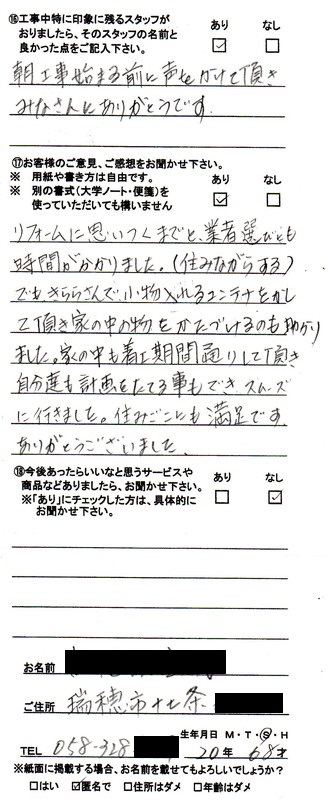 ⑯工事中特に印象に残るスタッフが あり なし
おりましたら、そのスタッフの名前と
良かった点をご記入下さい。 ☑ □
朝工事始まる前に声をかけて頂き
みなさんにありがとうです
⑰お客様のご意見、ご感想をお聞かせ下さい。
※ 用紙や書き方は自由です。 あり なし
※ 別の書式(大学ノート・便箋)を
使っていただいても構いません ☑ □
リフォームに思いつくまでと、業者選びとも
時間がかかりました。(住みながらする)
でもきららさんで小物入れるコンテナをかし
て頂き家の中の物をかたづけるのも助かり
ました。家の中も着工期間通りして頂き
自分達も計画をたてる事もでき スムーズ
に行きました。住みごこちも満足です。
ありがとうございました。
⑱今後あったらいいなと思うサービスや あり なし
商品などありましたら、お聞かせ下さい。
※「あり」にチェックした方は、具体的に □ ☑
お聞かせ下さい。
お名前
ご住所 瑞穂市十七条
生年月日 M・T・Ⓢ・H
TEL 058-328 20年 68才
※紙面に掲載する場合、お名前を載せてもよろしいでしょうか?
□はい ☑匿名で □住所はダメ □年齢はダメ